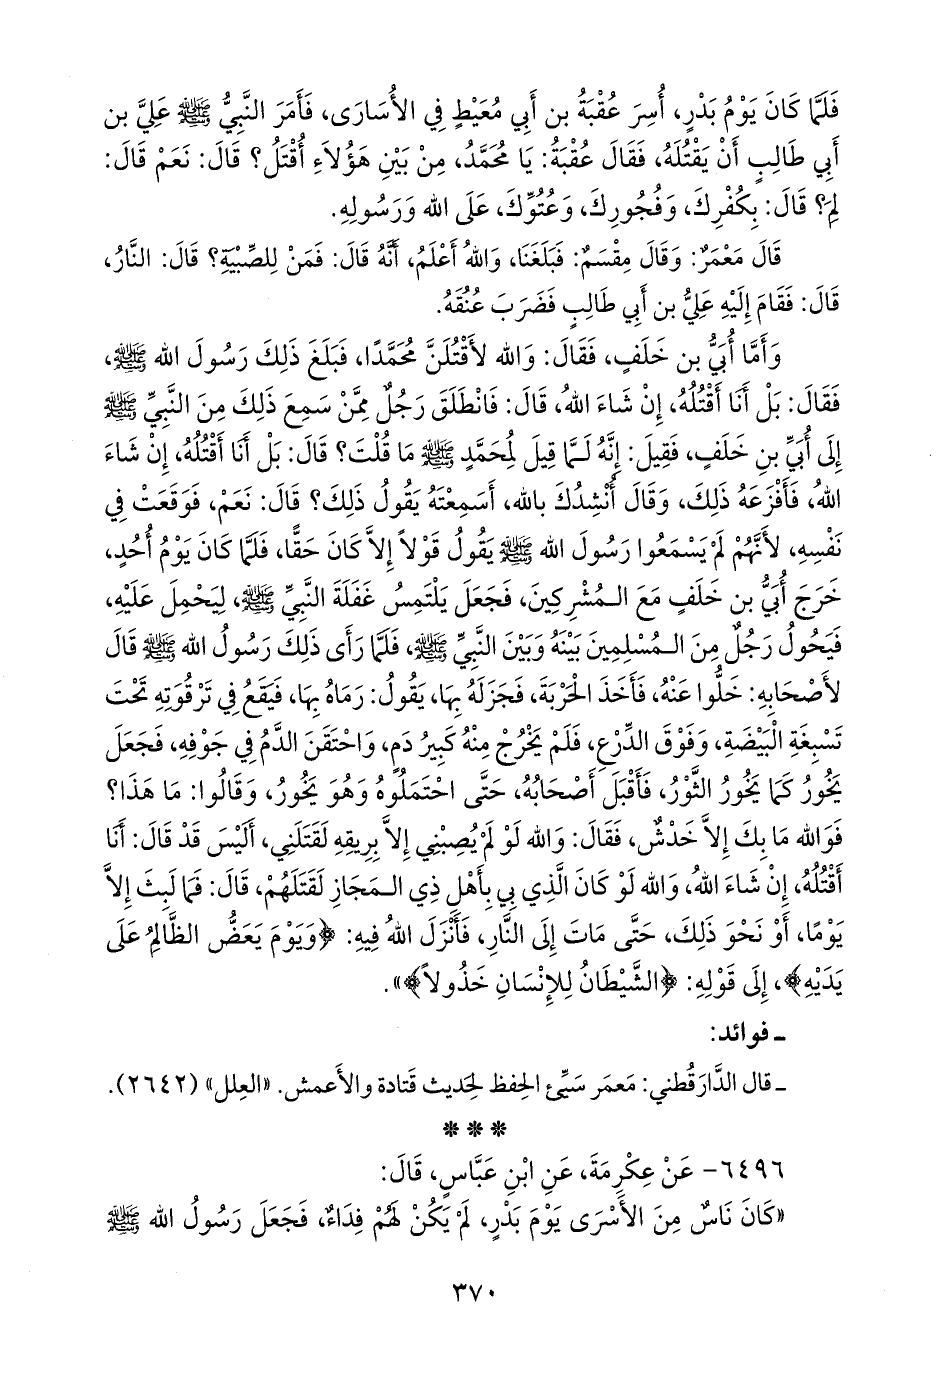 فَلَمَّا كَانَ يَوْمُ بَدْرٍ، أُسِرَ عُقْبَةُ بن أَبِي مُعَيْطٍ فِي الأُسَارَى، فَأَمَرَ النَّبِيُّ ﷺ عَلِيَّ بن
أَبِي طَالِبٍ أَنْ يَقْتُلَهُ، فَقَالَ عُقْبَةُ: يَا مُحَمَّدُ، مِنْ بَيْنِ هَؤُلاَءِ أُقْتَلُ؟ قَالَ: نَعَمْ قَالَ:
لِمَ؟ قَالَ: بِكُفْرِكَ، وَفُجُورِكَ، وَعُتُوِّكَ، عَلَى الله وَرَسُولِهِ.
قَالَ مَعْمَرٌ: وَقَالَ مِقْسَمٌ: فَبَلَغَنَا، وَاللهُ أَعْلَمُ، أَنَّهُ قَالَ: فَمَنْ لِلصِّبْيَةِ؟ قَالَ: النَّارُ،
قَالَ: فَقَامَ إِلَيْهِ عَلِيُّ بن أَبِي طَالِبٍ فَضَرَبَ عُنُقَهُ.
وَأَمَّا أُبَيُّ بن خَلَفٍ، فَقَالَ: وَالله لأَقْتُلَنَّ مُحَمَّدًا، فَبَلَغَ ذَلِكَ رَسُولَ الله ﷺ،
فَقَالَ: بَلْ أَنَا أَقْتُلُهُ، إِنْ شَاءَ اللهُ، قَالَ: فَانْطَلَقَ رَجُلٌ مِمَّنْ سَمِعَ ذَلِكَ مِنَ النَّبِيِّ ﷺ
إِلَى أُبَيِّ بنِ خَلَفٍ، فَقِيلَ: إِنَّهُ لَـمَّا قِيلَ لِمُحَمَّدٍ ﷺ مَا قُلْتَ؟ قَالَ: بَلْ أَنَا أَقْتُلُهُ، إِنْ شَاءَ
اللهُ، فَأَفْزَعَهُ ذَلِكَ، وَقَالَ أُنْشِدُكَ بالله، أَسَمِعْتَهُ يَقُولُ ذَلِكَ؟ قَالَ: نَعَمْ، فَوَقَعَتْ فِي
نَفْسِهِ، لأَنَّهُمْ لَمْ يَسْمَعُوا رَسُولَ الله ﷺ يَقُولُ قَوْلاً إِلاَّ كَانَ حَقًّا، فَلَمَّا كَانَ يَوْمُ أُحُدٍ،
خَرَجَ أُبَيُّ بن خَلَفٍ مَعَ الـمُشْرِكِينَ، فَجَعَلَ يَلْتَمِسُ غَفْلَةَ النَّبِيِّ ﷺ، لِيَحْمِلَ عَلَيْهِ،
فَيَحُولُ رَجُلٌ مِنَ الـمُسْلِمِينَ بَيْنَهُ وَبَيْنَ النَّبِيِّ ﷺ، فَلَمَّا رَأَى ذَلِكَ رَسُولُ الله ﷺ قَالَ
لأَصْحَابِهِ: خَلُّوا عَنْهُ، فَأَخَذَ الْحَرْبَةَ، فَجَزَلَهُ بِهَا، يَقُولُ: رَمَاهُ بِهَا، فَيَقَعُ فِي تَرْقُوَتِهِ تَحْتَ
تَسْبِغَةِ الْبَيْضَةِ، وَفَوْقَ الدِّرْعِ، فَلَمْ يَخْرُجْ مِنْهُ كَبِيرُ دَمٍ، وَاحْتَقَنَ الدَّمُ فِي جَوْفِهِ، فَجَعَلَ
يَخُورُ كَمَا يَخُورُ الثَّوْرُ، فَأَقْبَلَ أَصْحَابُهُ، حَتَّى احْتَمَلُوهُ وَهُوَ يَخُورُ، وَقَالُوا: مَا هَذَا؟
فَوَالله مَا بِكَ إِلاَّ خَدْشٌ، فَقَالَ: وَالله لَوْ لَمْ يُصِبْنِي إِلاَّ بِرِيقِهِ لَقَتَلَنِي، أَلَيْسَ قَدْ قَالَ: أَنَا
أَقْتُلُهُ، إِنْ شَاءَ اللهُ، وَالله لَوْ كَانَ الَّذِي بِي بِأَهْلِ ذِي الـمَجَازِ لَقَتَلَهُمْ، قَالَ: فَمَا لَبِثَ إِلاَّ
يَوْمًا، أَوْ نَحْوَ ذَلِكَ، حَتَّى مَاتَ إِلَى النَّارِ، فَأَنْزَلَ اللهُ فِيهِ: ﴿وَيَوْمَ يَعَضُّ الظَّالِمُ عَلَى
يَدَيْهِ﴾، إِلَى قَوْلِهِ: ﴿الشَّيْطَانُ لِلإِنْسَانِ خَذُولاً﴾».
ـ فوائد:
ـ قال الدَّارَقُطني: مَعمَر سَيِّئ الحِفظ لِحديث قَتادة والأَعمش. «العِلل» (٢٦٤٢).
***
٦٤٩٦- عَنْ عِكْرِمَةَ، عَنِ ابْنِ عَبَّاسٍ، قَالَ:
«كَانَ نَاسٌ مِنَ الأَسْرَى يَوْمَ بَدْرٍ، لَمْ يَكُنْ لَهُمْ فِدَاءٌ، فَجَعَلَ رَسُولُ الله ﷺ
٣٧٠